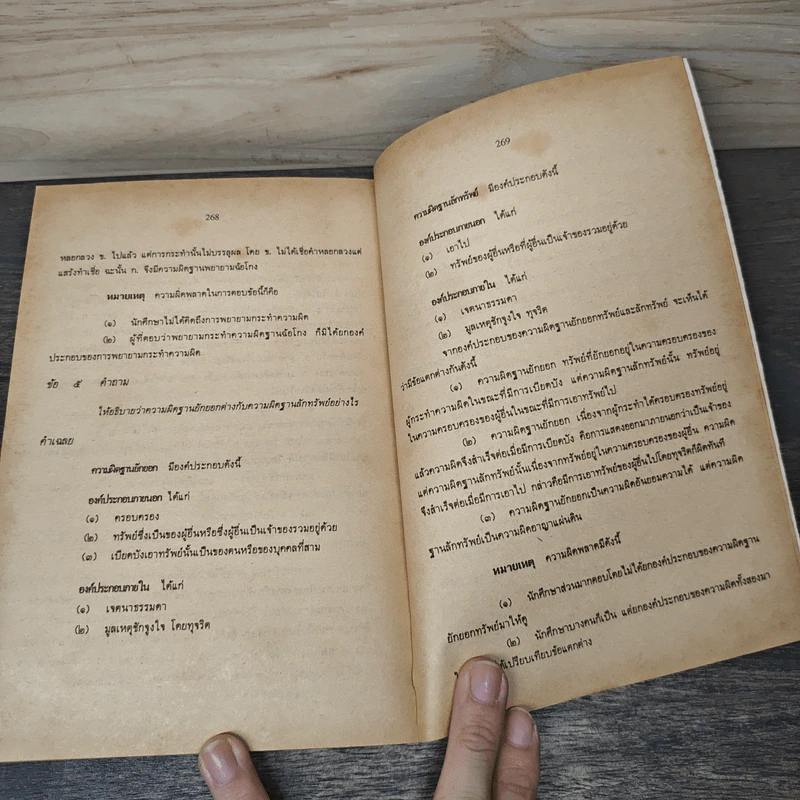 268
หลอกลวง ข. ไปแล้ว แต่การกระทำนั้นไม่บรรลุผล โดย ข. ไม่ได้เชื่อคำหลอกลวงแต่
แสร้งทำเชื่อ ฉะนั้น ก. จึงมีความผิดฐานพยายามฉ้อโกง
หมายเหตุ ความผิดพลาดในการตอบข้อนี้ก็คือ
(๑) นักศึกษาไม่ได้คิดถึงการพยายามกระทำความผิด
(๒) ผู้ที่ตอบว่าพยายามกระทำความผิดฐานฉ้อโกง ก็มิได้ยกองค์
ประกอบของการพยายามกระทำความผิด
ข้อ ๕ คำถาม
ให้อธิบายว่าความผิดฐานยักยอกต่างกับความผิดฐานลักทรัพย์อย่างไร
คำเฉลย
ความผิดฐานยักยอก มีองค์ประกอบดังนี้
องค์ประกอบภายนอก ได้แก่
(๑) ครอบครอง
(๒) ทรัพย์ซึ่งเป็นของผู้อื่นหรือซึ่งผู้อื่นเป็นเจ้าของรวมอยู่ด้วย
(๓) เบียดบังเอาทรัพย์นั้นเป็นของตนหรือของบุคคลที่สาม
องค์ประกอบภายใน ได้แก่
(๑) เจตนาธรรมดา
(๒) มูลเหตุชักจูงใจ โดยทุจริต
269
ความผิดฐานลักทรัพย์ มีองค์ประกอบดังนี้
องค์ประกอบภายนอก ได้แก่
(๑) เอาไป
(๒) ทรัพย์ของผู้อื่นหรือที่ผู้อื่นเป็นเจ้าของรวมอยู่ด้วย
องค์ประกอบภายใน ได้แก่
(๑) เจตนาธรรมดา
(๒) มูลเหตุชักจูงใจ ทุจริต
จากองค์ประกอบของความผิดฐานยักยอกทรัพย์และลักทรัพย์ จะเห็นได้
ว่ามีข้อแตกต่างกันดังนี้
(๑) ความผิดฐานยักยอก ทรัพย์ที่ยักยอกอยู่ในความครอบครองของ
ผู้กระทำความผิดในขณะที่มีการเบียดบัง แต่ความผิดฐานลักทรัพย์นั้น ทรัพย์อยู่
ในความครอบครองของผู้อื่นในขณะที่มีการเอาทรัพย์ไป
(๒) ความผิดฐานยักยอก เนื่องจากผู้กระทำได้ครอบครองทรัพย์อยู่
แล้วความผิดจึงสำเร็จต่อเมื่อมีการเบียดบัง คือการแสดงออกมาภายนอกว่าเป็นเจ้าของ
แต่ความผิดฐานลักทรัพย์นั้นเนื่องจากทรัพย์อยู่ในความครอบครองของผู้อื่น ความผิด
จึงสำเร็จต่อเมื่อมีการเอาไป กล่าวคือมีการเอาทรัพย์ของผู้อื่นไปโดยทุจริตก็ผิดทันที
(๓) ความผิดฐานยักยอกเป็นความผิดอันยอมความได้ แต่ความผิด
ฐานลักทรัพย์เป็นความผิดอาญาแผ่นดิน
หมายเหตุ ความผิดพลาดมีดังนี้
(๑) นักศึกษาส่วนมากตอบโดยไม่ได้ยกองค์ประกอบของความผิดฐาน
ยักยอกทรัพย์มาให้ดู
(๒) นักศึกษาบางคนก็เป็น แต่ยกองค์ประกอบของความผิดทั้งสองมา
ได้เปรียบเทียบข้อแตกต่าง